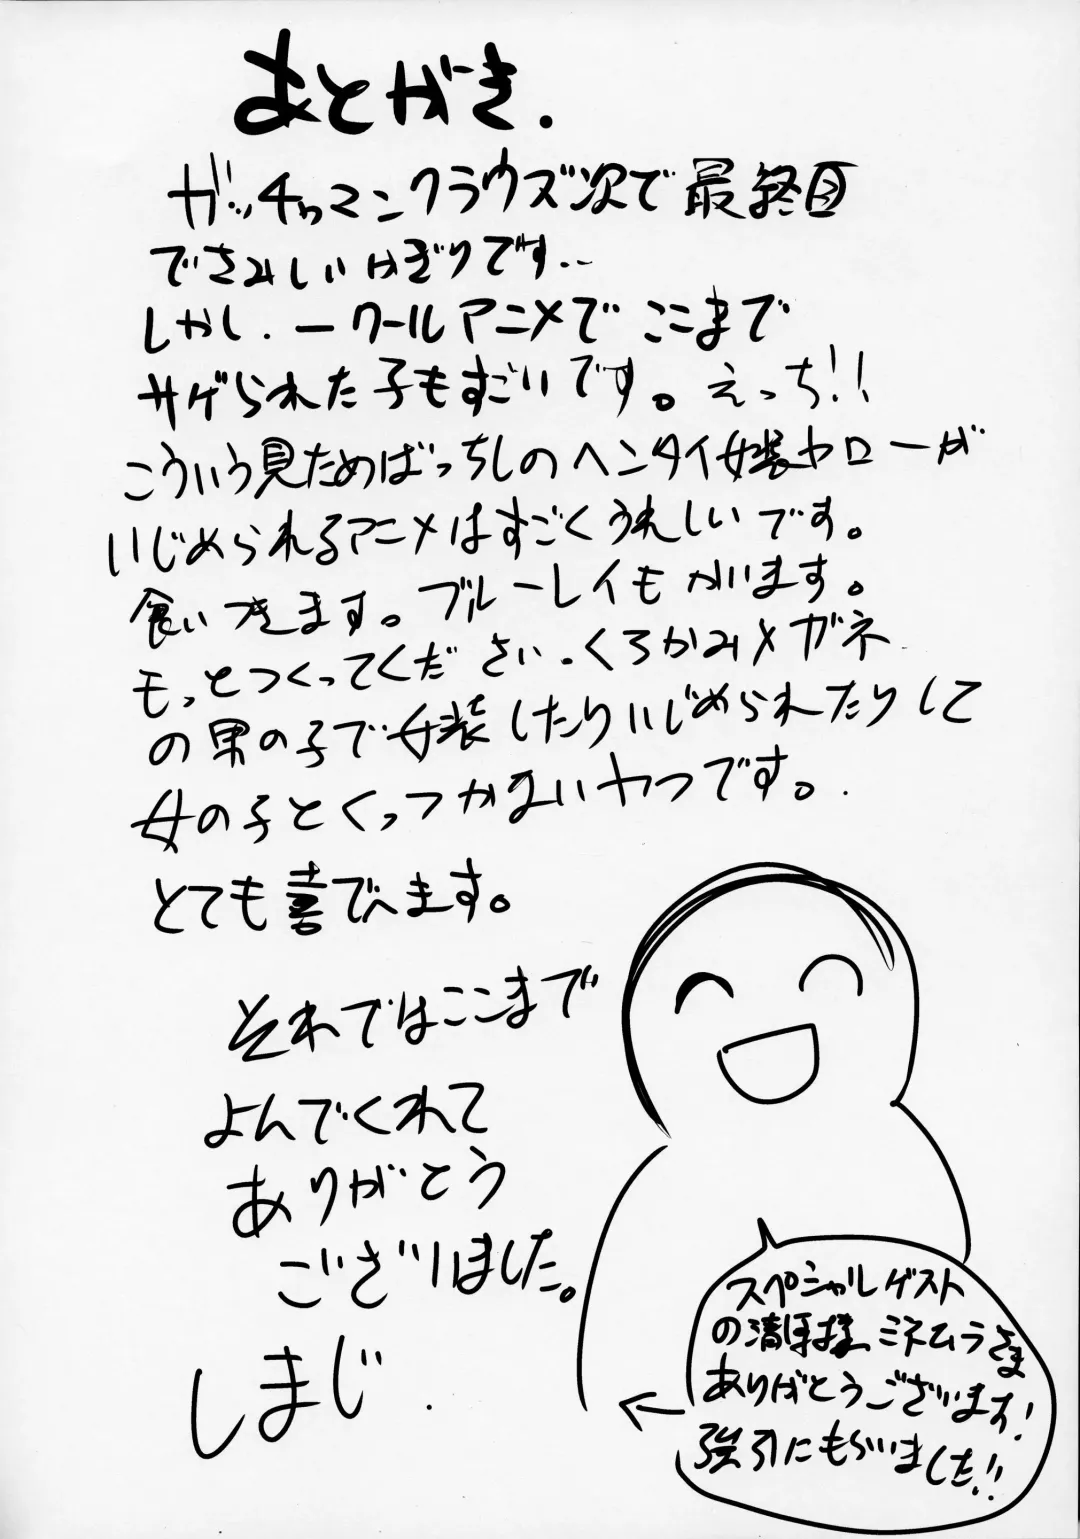 あとがき.
ガッチャマンクラウズ次で最終回
でさみしいかぎりです..
しかし.一クールアニメでここまで
サゲられた子もすごいです。えっち!!
こういう見ためばっちしのヘンタイ女装ヤローが
いじめられるアニメはすごくうれしいです。
食いつきます。ブルーレイもかいます。
もっとつくってください.くろかみメガネ
の男の子で女装したりいじめられたりして
女の子とくっつかないヤつです。.
とても喜びます。
それではここまで
よんでくれて
ありがとう
ございました。
しまじ.
スペシャルゲスト
の清孝様、ミネムラさま
ありがとうございます!
強引にもらいました!!